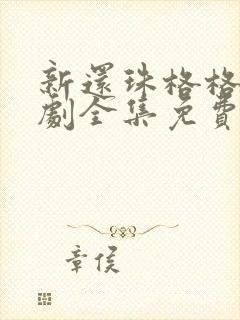 新還珠格格
劇全集免費
章侯